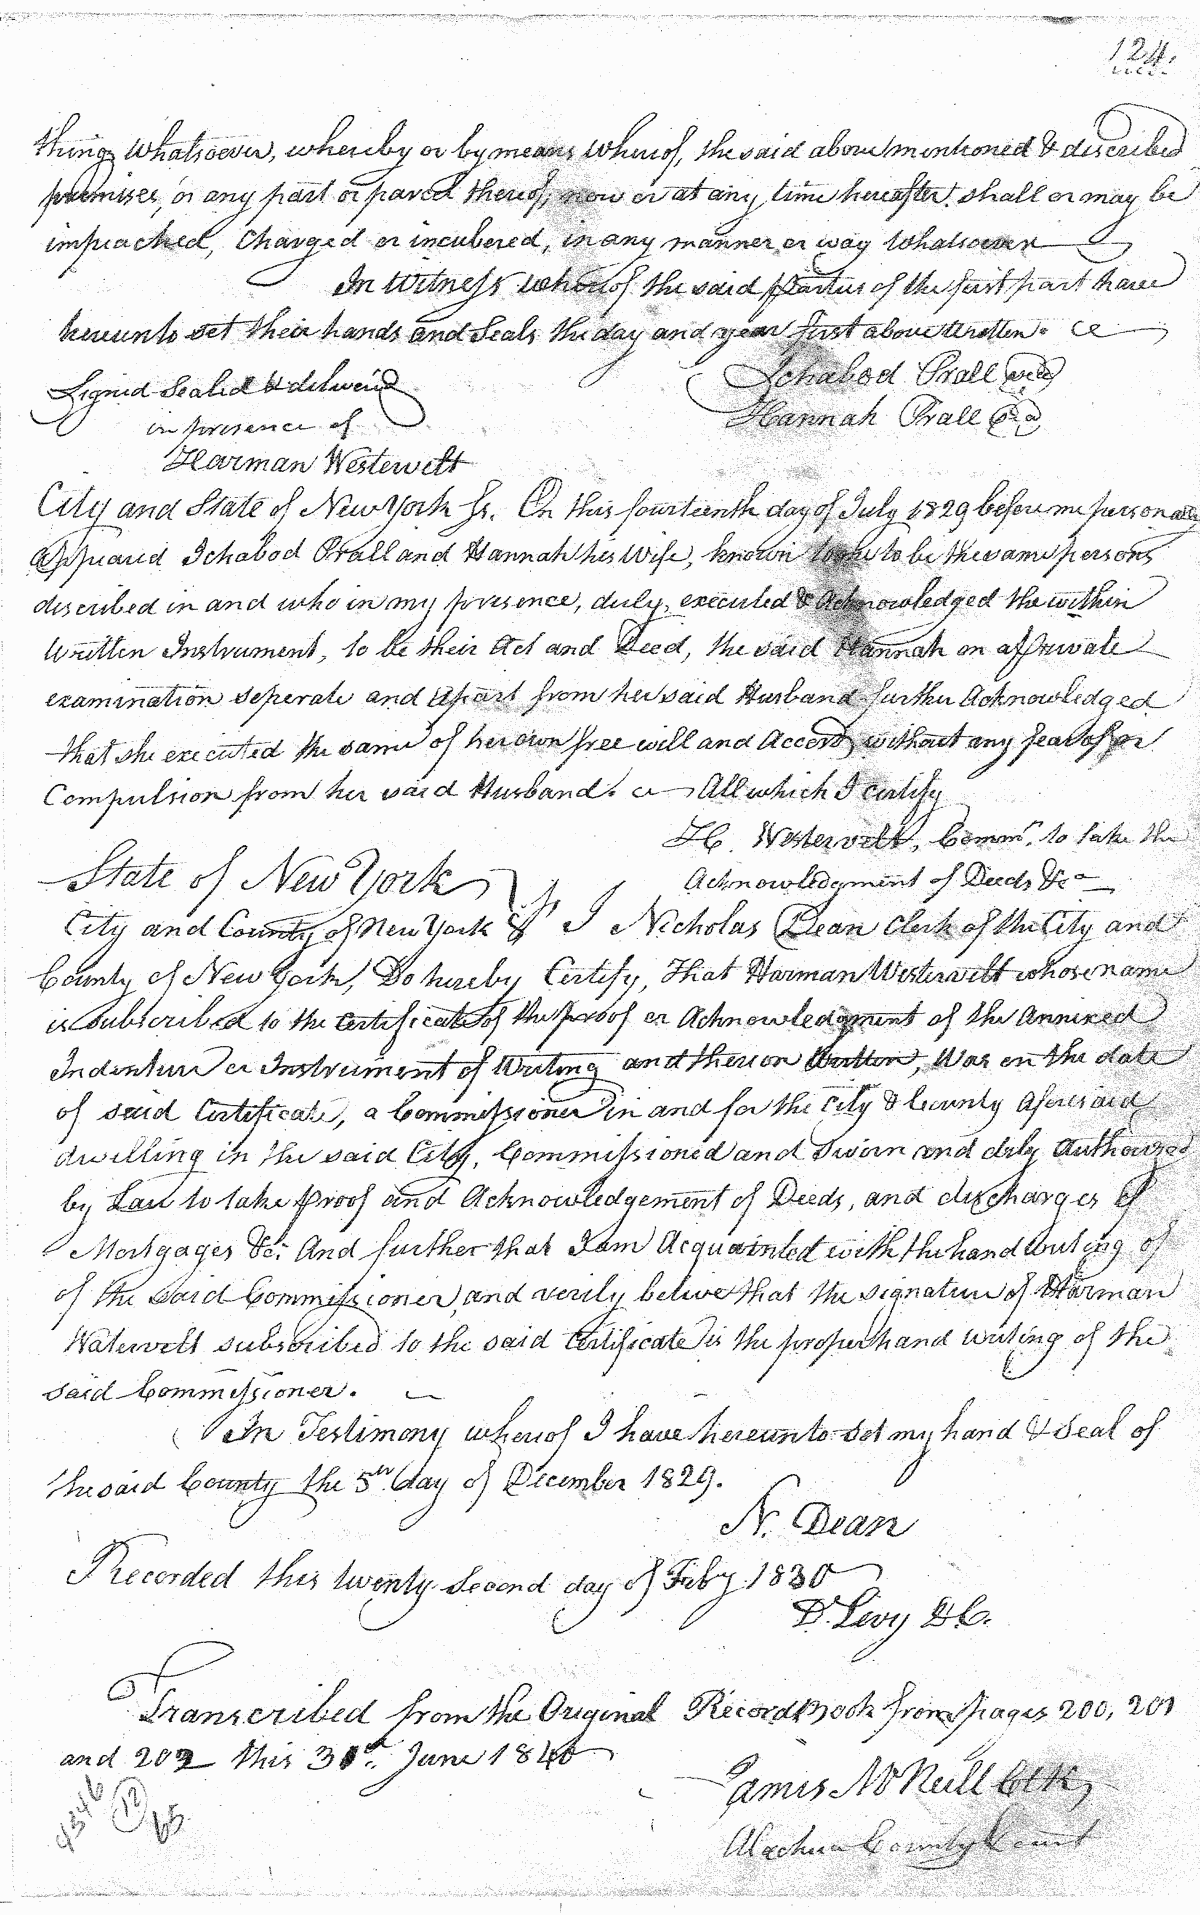 124.
thing whatsoever, whereby or by means whereof, the said above mentioned & described
premises, or any part or parcel thereof, now or at any time hereafter shall or may be
impeached, Charged or incubered, in any manner or way Whatsoever
In Witness whereof the said parties of the first part have
hereunto set their hands and Seals the day and year first above Written.
Signed Sealed & delivered
Ichabod Prall
in presence of
Hannah Prall
Harman Westervelt
City and State of New York Ss. On this fourteenth day of July 1829 before me personally
appeared Ichabod Prall and Hannah his Wife, known to me to be the same persons
discribed in and who in my presence, duly, executed & Acknowledged the within
Written Instrument, to be their Act and Deed, the said Hannah on a private
examination seperate and apart from her said Husband further Acknowledged
that she executed the same of her own free will and Accord, without any fear of or
Compulsion from her said Husband. All which I certify
H. Westervelt, Commr. to take the
State of New York
Acknowledgment of Deeds &c a
City and County of New York Ss I Nicholas Dean Clerk of the City and
County of New York, Do hereby Certify, That Harman Westervelt whose name
is subscribed to the Certificate of the proof or Acknowledgment of the Annexed
Indenture or Instrument of Writing and thereon Written, Was on the date
of said Certificate, a Commissioner in and for the City & County Aforesaid
dwelling in the said City, Commissioned and Sworn and duly Authorized
by Law to take proof and Acknowledgement of Deeds, and discharges of
Mortgages &c; And further that I am Acquainted with the hand writing of
of the said Commissioner, and verily belive that the signature of Harman
Watervelt subscribed to the said Certificate is the proper hand writing of the
said Commissioner.
In Testimony whereof I have hereunto set my hand & Seal of
the said County the 5th day of December 1829.
N. Dean
Recorded this twenty second day of Feby 1830
D. Levy D C.
Transcribed from the Original Record Book from pages 200, 201
and 202 this June 1840
James McNeill Clk
Alachua County Court
4346 12 65